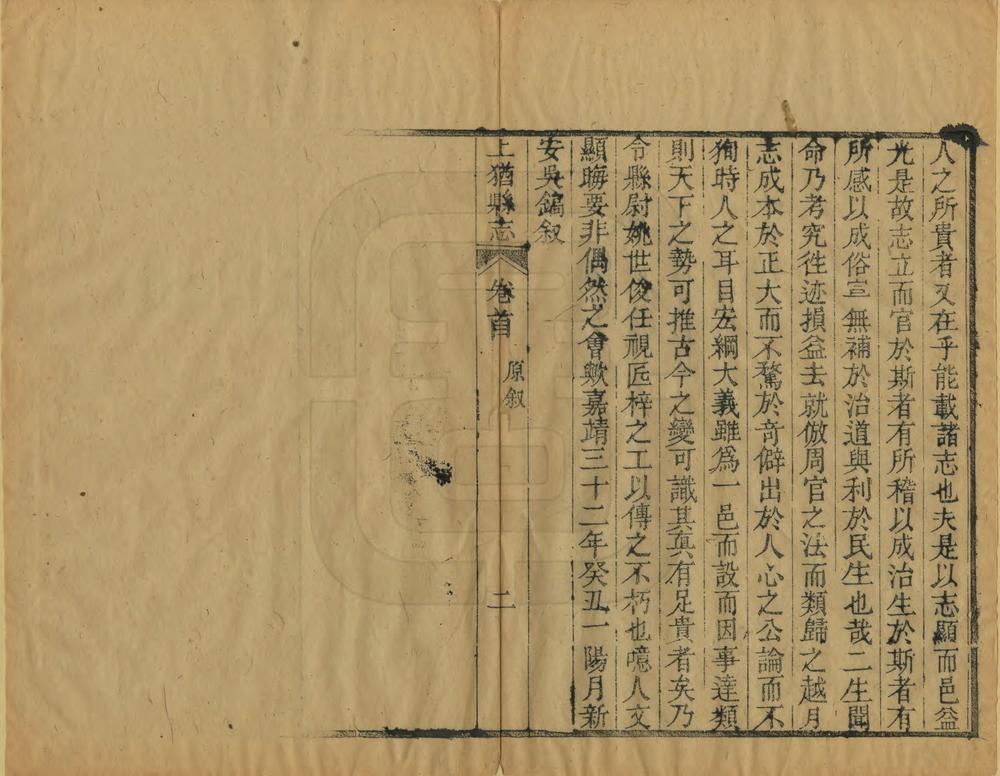 人之所貴者又在乎能載諸志也夫是以志顯而邑益
光是故志立而官於斯者有所稽以成治生於斯者有
所感以成俗豈無補於治道與利於民生也哉二生聞
命乃考究徃迹損益去就倣周官之法而類歸之越月
志成本於正大而不騖於奇僻出於人心之公論而不
狥時人之耳目宏綱大義雖爲一邑而設而因事達類
則天下之勢可推古今之變可識其眞有足貴者矣乃
令縣尉姚世俊任視匠梓之工以傳之不朽也噫人文
顯晦要非偶然之會歟嘉靖三十二年癸丑一陽月新
安吳鎬叙
上猶縣志
卷首
原叙
二